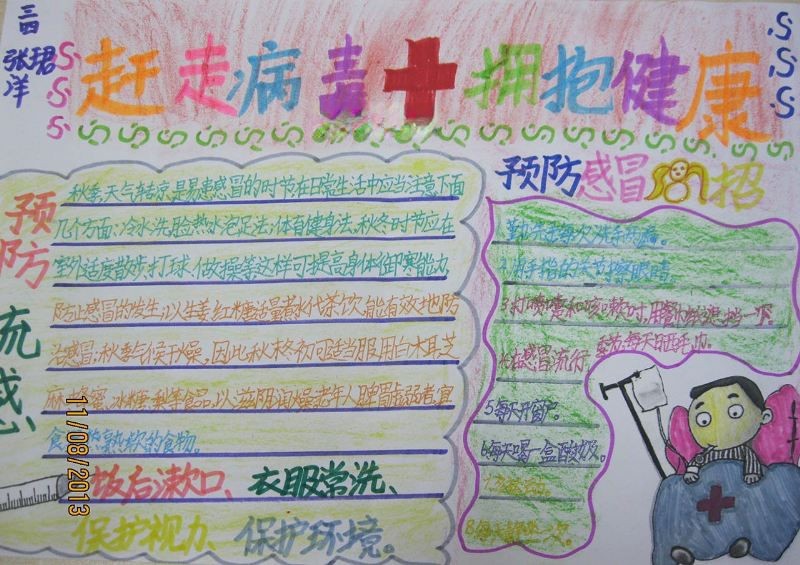 三四
张珺洋
赶走病毒 拥抱健康
预防流感
秋季,天气转凉,是易患感冒的时节在日常生活中应当注意下面
几个方面:冷水洗脸热水泡足法;体育健身法,秋冬时节应在
室外适度散步、打球、做操等这样可提高身体御寒能力,
防止感冒的发生;以生姜、红糖适量煮水代茶饮,能有效地防
治感冒;秋季气候干燥,因此,秋末冬初可适当服用白木耳、芝
麻、蜂蜜、冰糖、梨等食品,以滋阴润燥老年人脾胃虚弱者,宜
食 熟软的食物。
饭后漱口、衣服常洗、
保护视力、保护环境。
预防感冒 招
勤洗手每次洗手
手指的关节擦眼睛
3.打喷嚏和咳嗽时,用餐巾纸遮挡一下。
4.在感冒流行季节,每天
5.每天开窗户。
6.每天喝一盒酸奶。
8.每天
11/08/2013